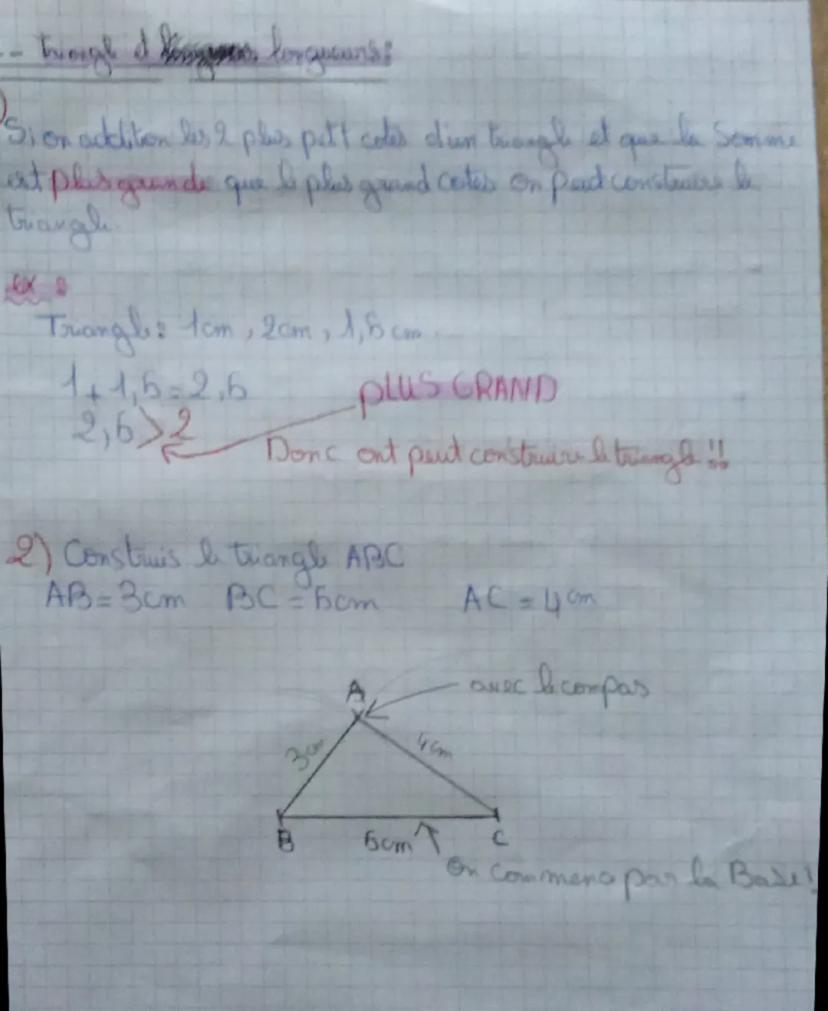 - triangle d longueurs:
Si on addition les 2 plus petit cotés d'un triangle et que la Somme
est plus grande que le plus grand cotés on peut construire le
triangle.
ex :
Triangle: 1cm, 2cm, 1,5cm.
1+1,5=2,5
2,5>2
PLUS GRAND
Donc ont peut construire le triangle !!
2) Construis le triangle ABC
AB=3cm BC=5cm AC=4cm
A
avec le compas
3cm
4cm
B
5cm
C
On commence par la Base!